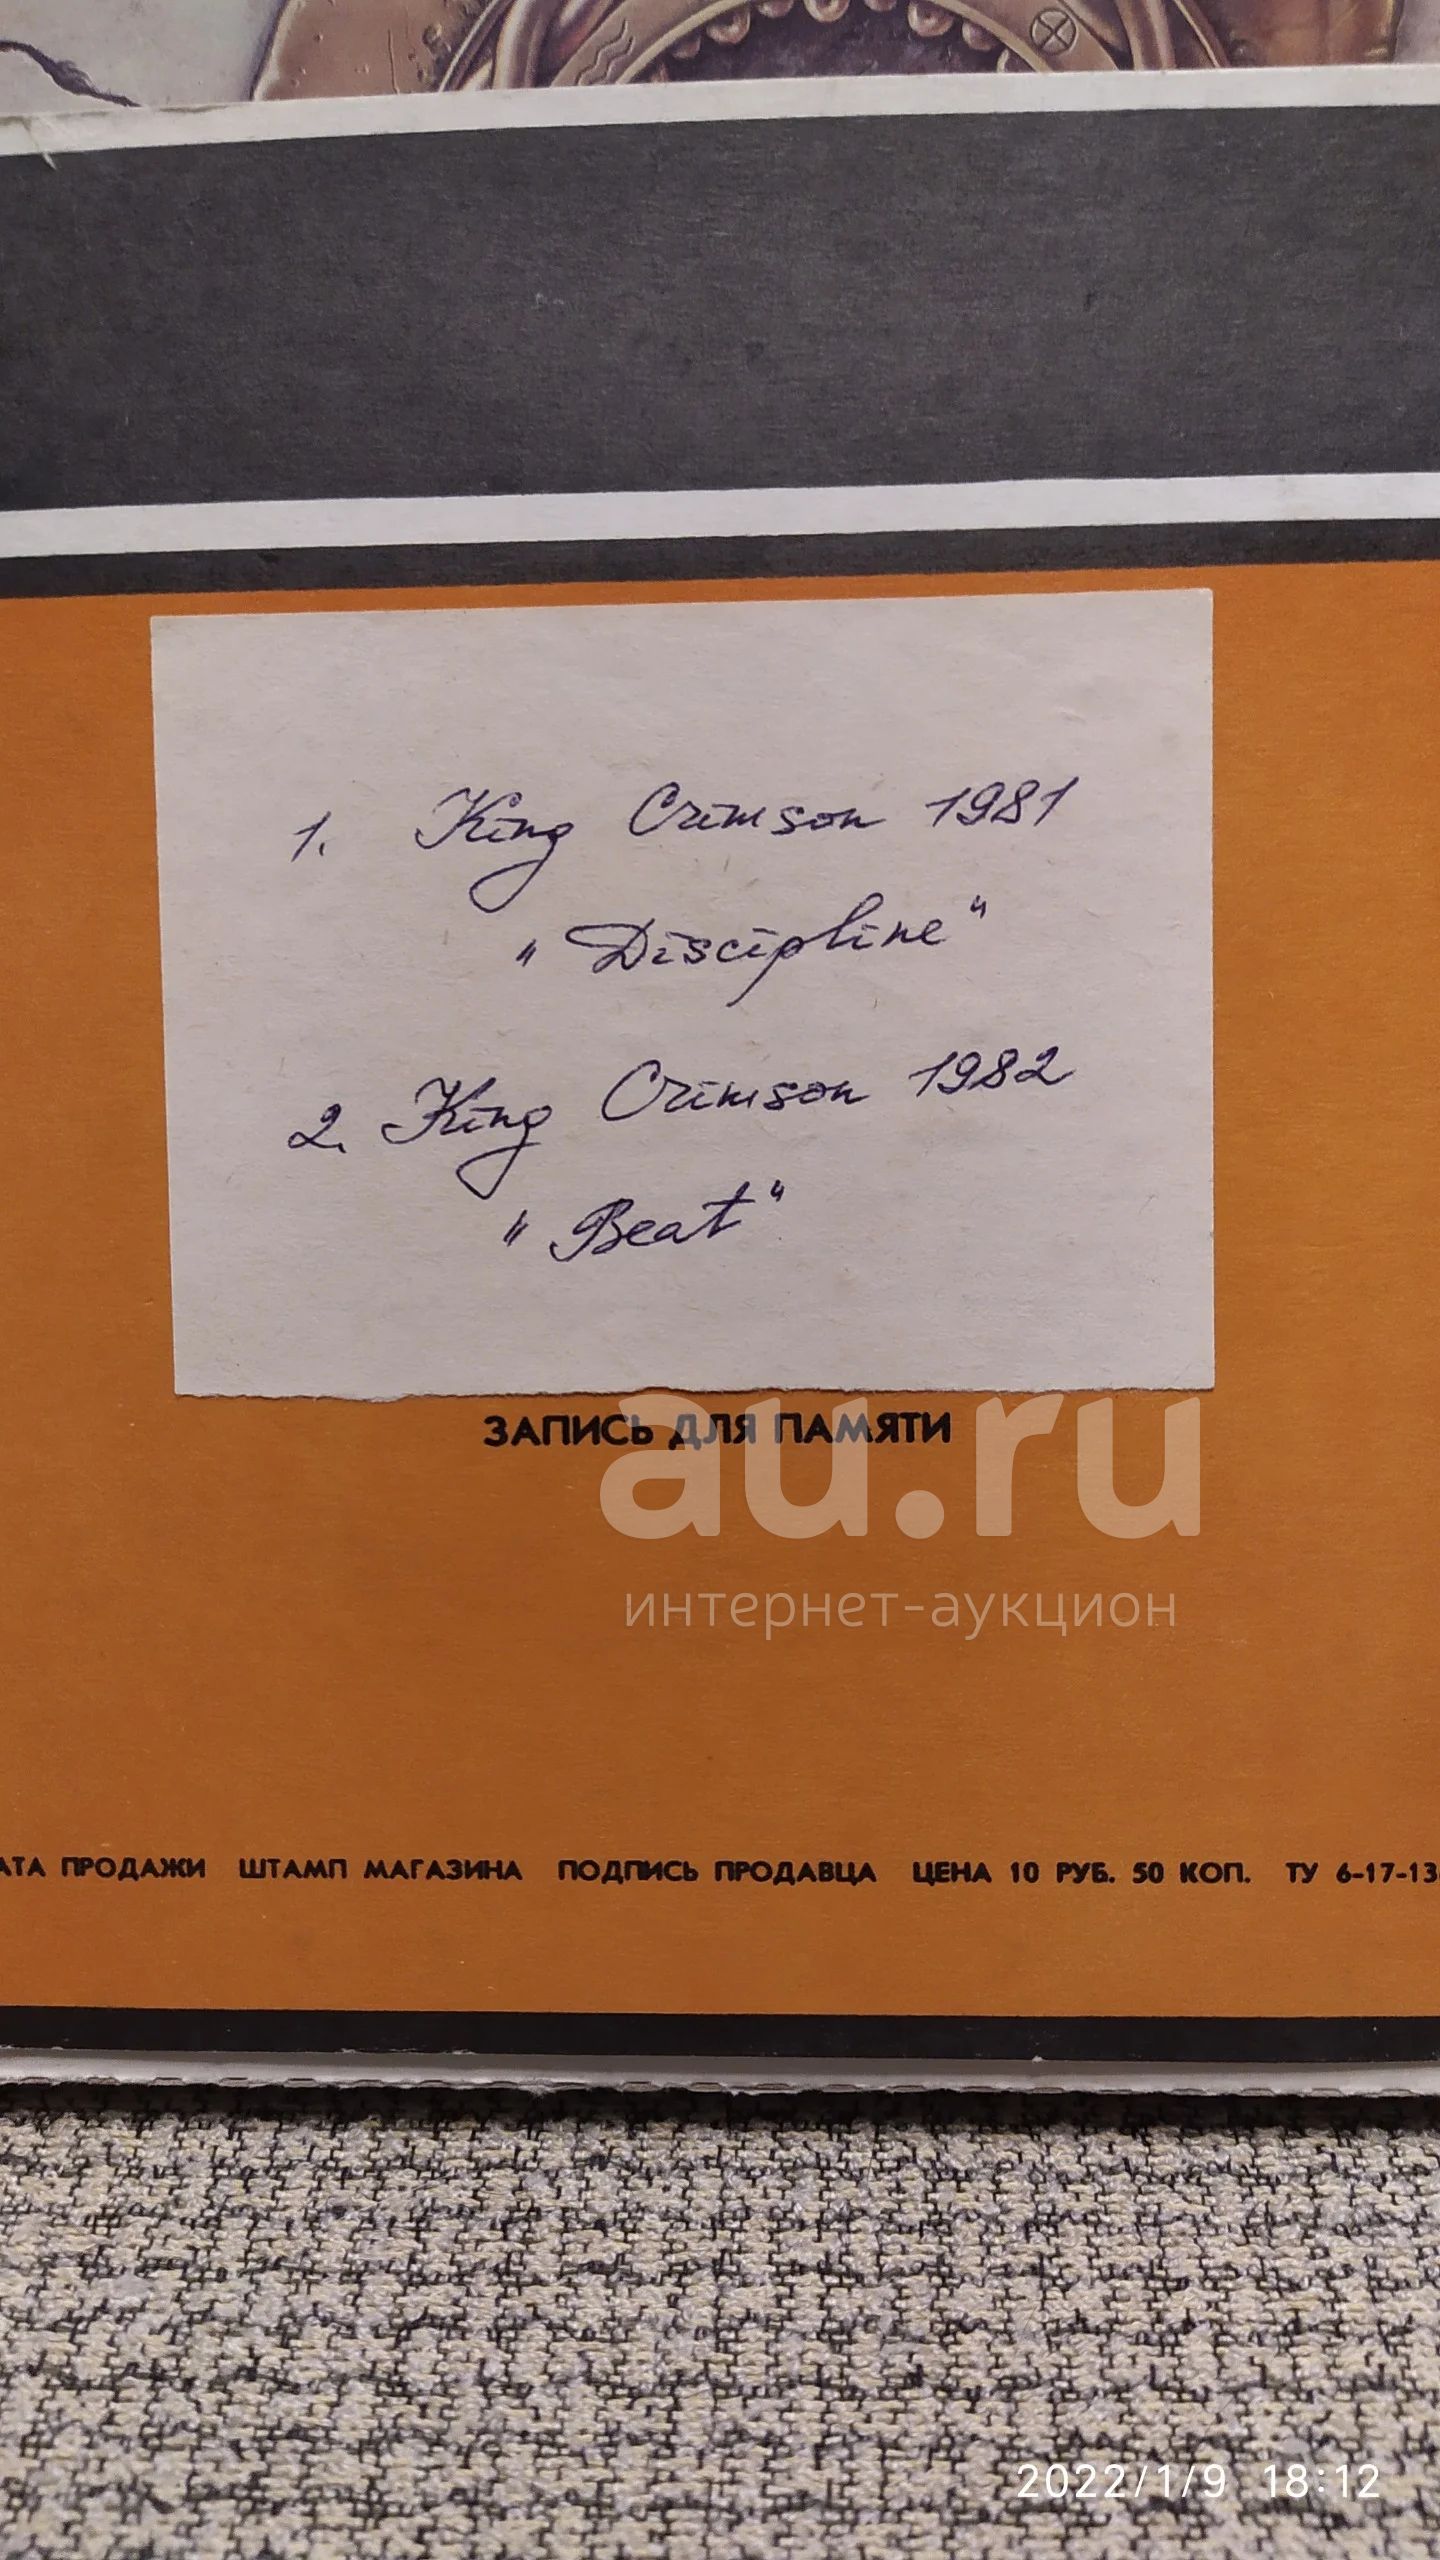 1. King Crimson 1981
"Discipline"
2. King Crimson 1982
"Beat"
ЗАПИСЬ ДЛЯ ПАМЯТИ
au.ru
интернет-аукцион
АТА ПРОДАЖИ ШТАМП МАГАЗИНА ПОДПИСЬ ПРОДАВЦА ЦЕНА 10 РУБ. 50 КОП. ТУ 6-17-13
2022/1/9 18:12